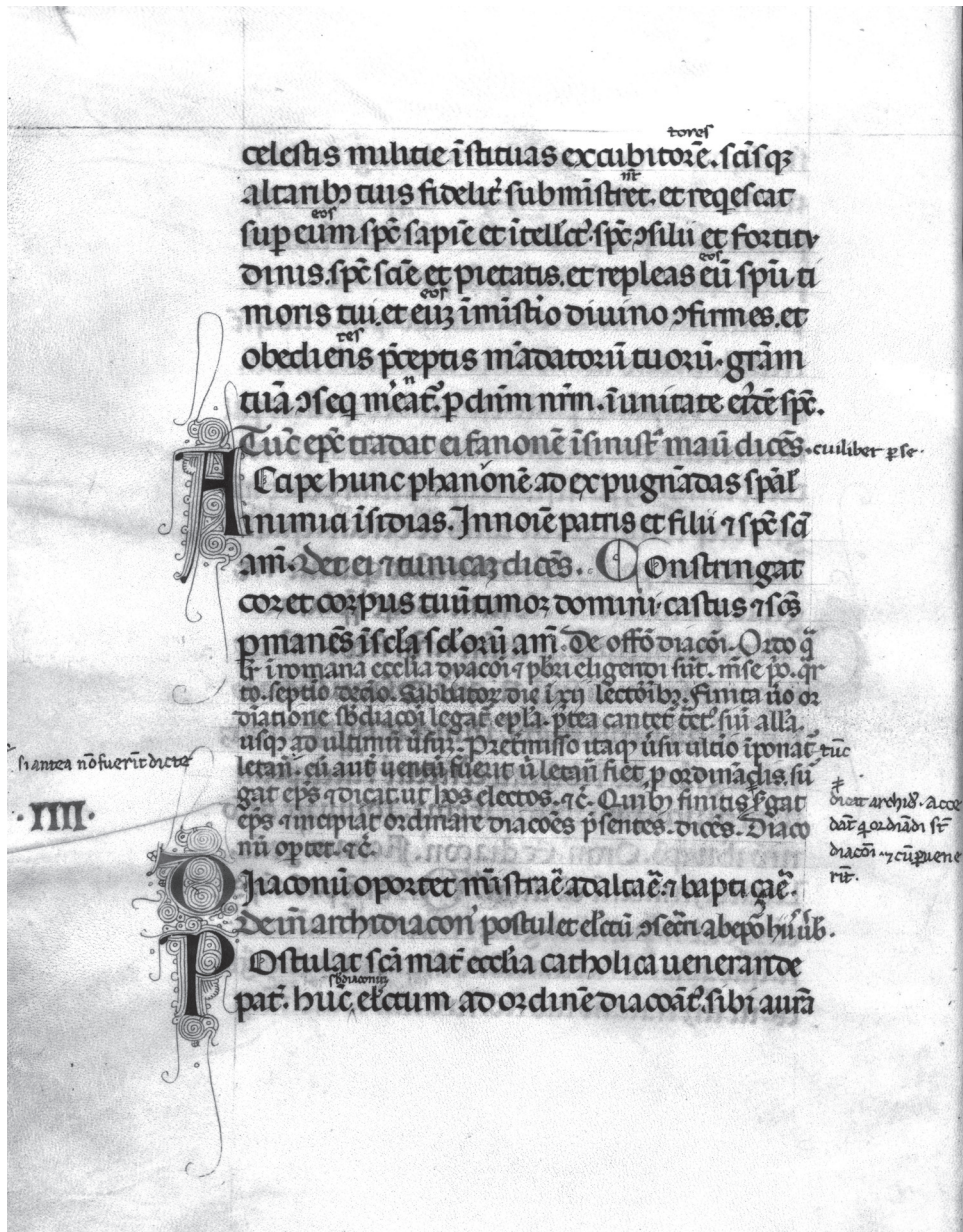 tores
celestis militie īstituas excubitorē. sc̄isq3
nt
altarib9 tuis fidelit̉ submīstret. et reqescat
eos
sup eum sp̄c sapīe et ītell̄ct9. sp̄c ↄsilii et fortitu
eos
dinis. sp̄c scīe et pietatis. et repleas eū sp̄u ti
eos
moris tui. et eu3 īmistīo diuino ↄfirmes. et
tes
obediens p̄ceptis mādatorū tuorū. grām
n
tuā ↄseq m̉eat̉. p dnīm nrm̄. ī unitate ei9dē sp̄c.
Tūc ep̄c tradat ei fanonē ī sinist̉ maū dicēs. cuilibet ꝑ se.
Accipe hunc phanonē ad expugnādas sp̄al̄
inimici īsidias. In noīe patris et filii ⁊ sp̄c sc̄i
am̄. Det ei ⁊ tunica3 dicēs. Constringat
cor et corpus tuū timor domini castus ⁊ sc̄s
pmanēs ī sc̄la scl̄orū am̄. De offō diacōi. Ordo q̄l̄
lr̄ ī romana eccl̄ia dyacōi ⁊ pbr̄i eligendi sūt. m̄se p̉o. q̉r
to. septīo decīo. Sabbator̄ die ī xii lectōib3. Finita ūo or
dīatione sb̄diacōi legat̉ ep̄la. p̄tea cantet̉ tct̉ siū all̄a.
usq3 ad ultimū ūsū3. Pretmisso itaq3 ūsu ultīo īponat̉ tūc
si antea nō fuerīt dicte
letan̄. cū aut̄ uentū fuerit ū letan̄ fiēt p ordinādis. sur̄
gat ep̄s ⁊ dicat ut hos electos. ⁊c̄. Quib9 finitis s̉gat
dicat archid̄. Acce
dāt q̉ ordīādi st̄
diacōn ⁊ cū ꝑuene
rīt.
·IIII·
ep̄s ⁊ incipiat ordinare diacōes p̄sentes. dicēs. Diaco
nū oꝑtet. ⁊c̄.
Diaconū oportet mīstraē ad altaē. ⁊ baptiçaē.
Dein̄ archidiacon̉ postulet el̄ctū ↄsecr̄i ab epō hiis ūb.
Postulat sc̄a mat̉ eccl̄ia catholica uenerande
sb̄diaconū3
pat̉. hūc el̄ctum ad ordinē diacoāt9. sibi aurā